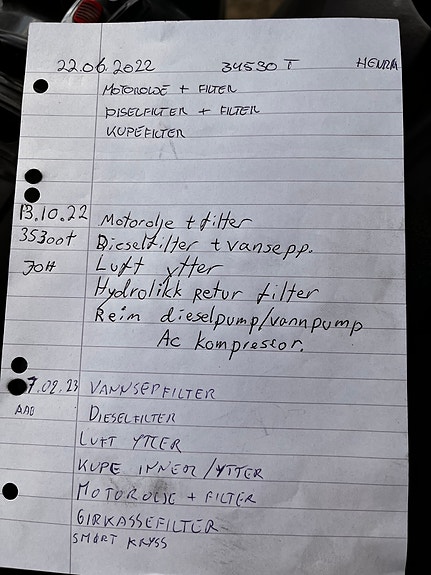 22.06.2022 34530 T HENRA
MOTOROLJE + FILTER
DISELFILTER + FILTER
KUPEFILTER
13.10.22 Motorolje + filter
35300t Dieselfilter + vansepp.
JOH Luft ytter
Hydrolikk Retur filter
Reim dieselpump/vannpump
Ac kompressor.
7.02.23 VANNSEPFILTER
DIESELFILTER
LUFT YTTER
KUPE INNER/YTTER
MOTOROLJE + FILTER
GIRKASSEFILTER
SMØRT KRYSS